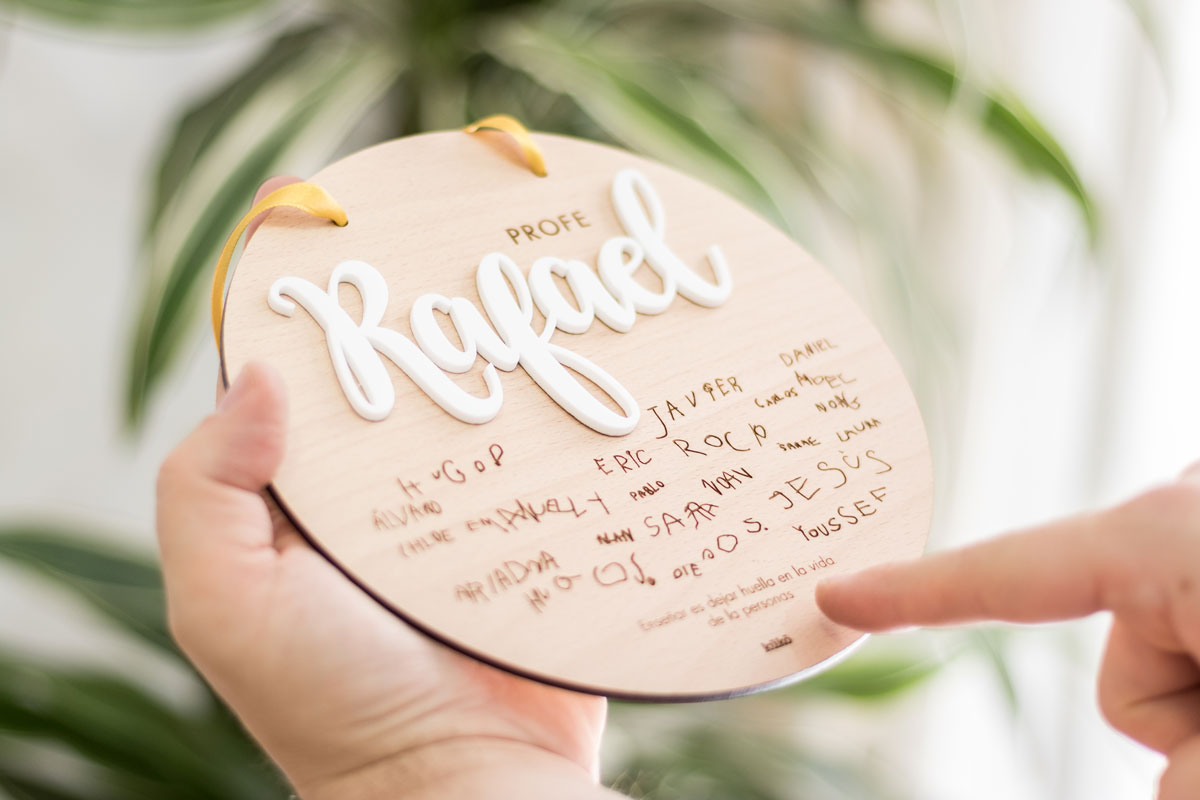 PROFE
Rafael
DANIEL
JAVIER CARLOS
HUGO P ERIC ROCIO
ÁLVARO PABLO NOAH SARAE LAURA
CHLOE EMANUELLY
ALAN SARA JESÚS
ARIADNA HUGO S. DIEGO S. YOUSSEF
Enseñar es dejar huella en la vida
de la personas